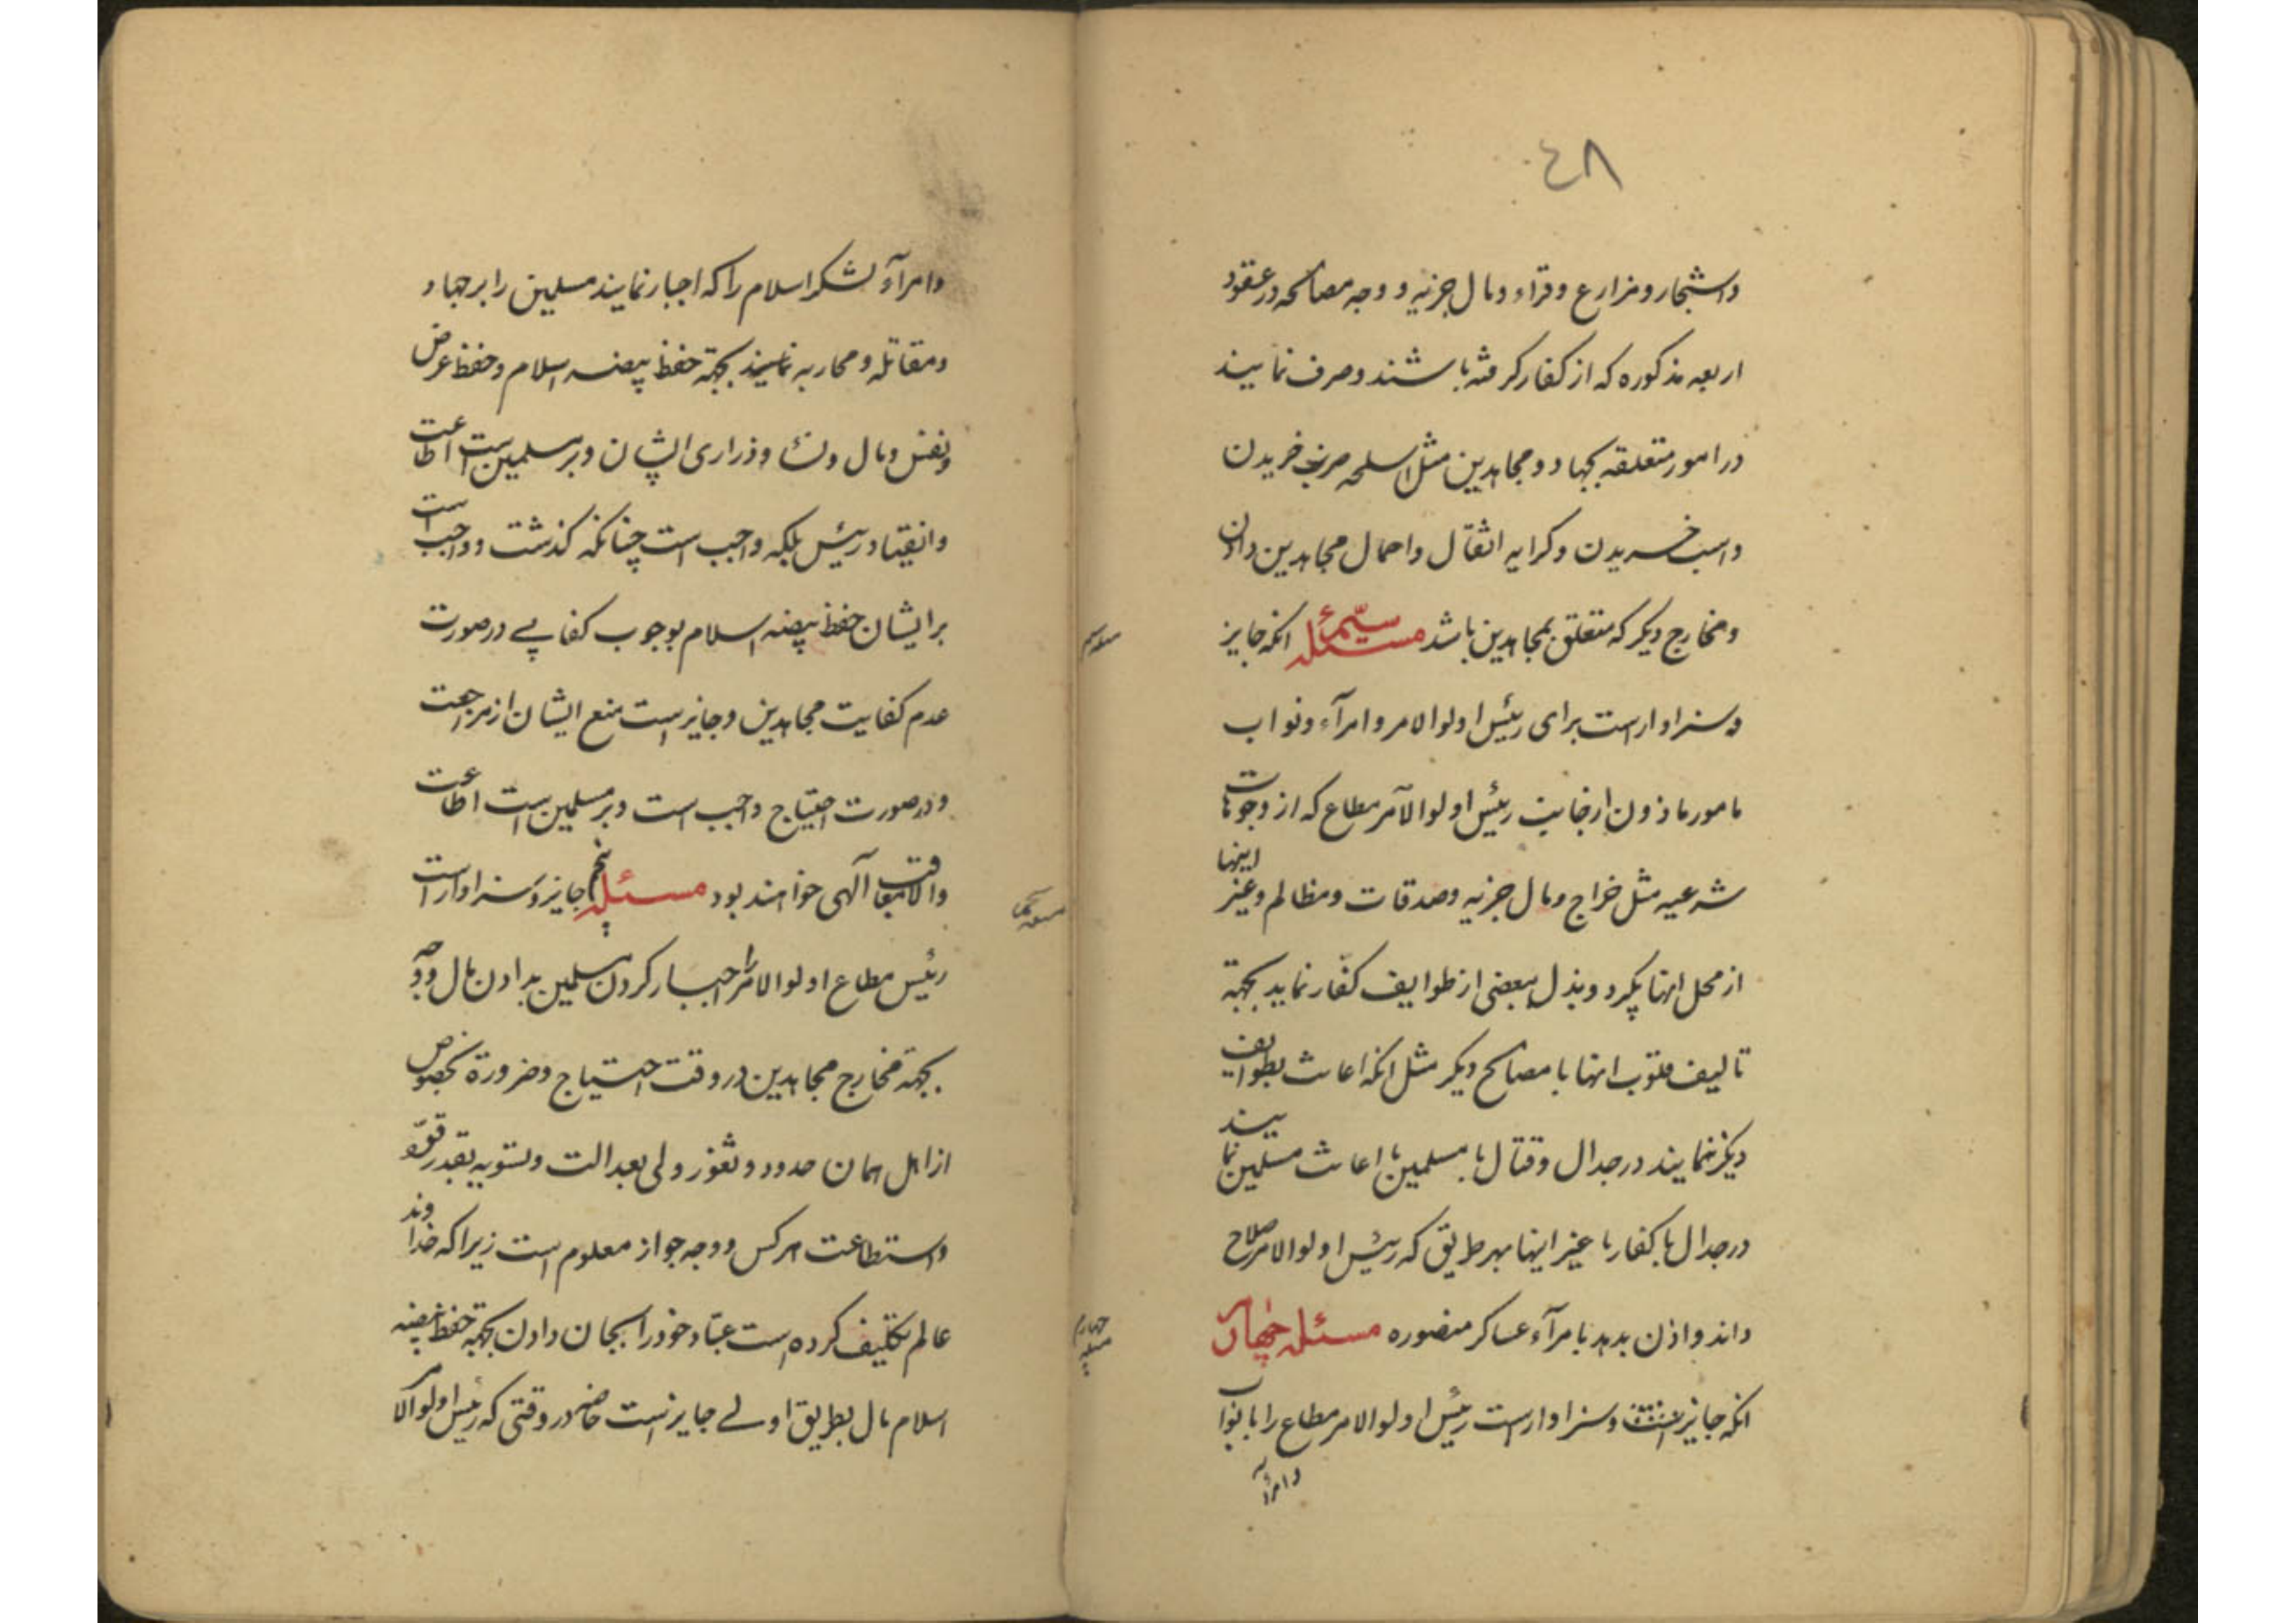 ٤٨
واشجار و مزارع و قراء و مال جزیه و وجه مصالحه در عقود
اربعه مذکوره که از کفار گرفته باشند و صرف نمایند
در امور متعلقه بجهاد و مجاهدین مثل اسلحه حرب خریدن
واسب خریدن و کرایه اثقال واحمال مجاهدین دادن
ومخارج دیکر که متعلق بمجاهدین باشد مسئله سیّم انکه جایز
و سزاوار است برای رئیس اولوا الامر و امرآء و نواب
مامور ماذون از جانب رئیس اولوا الامر مطاع که از وجوهات
شرعیه مثل خراج و مال جزیه وصدقات ومظالم وغیر اینها
از محل انها بگیرد و بذل ببعضی از طوایف کفار نماید بجهة
تالیف قلوب انها با مصالح دیکر مثل انکه اعانت بطوایف
دیکر ننمایند در جدال و قتال با مسلمین یا اعانت مسلمین نمایند
در جدال با کفار یا غیر اینها بهر طریق که رئیس اولوا الامر صلاح
داند واذن بدهد بامرآء عساکر منصوره مسئله چهارم
انکه جایز است وسزاوار است رئیس اولوا الامر مطاع را با نواب
وامرآء
مسئله سیم
چهارم مسئله
وامرآء لشکر اسلام را که اجبار نمایند مسلمین را بر جهاد
ومقاتله و محاربه نمایند بجهة حفظ بیضه اسلام و حفظ عرض
ونفس و مال و نساء و ذراری ایشان و بر مسلمین است اطاعت
وانقیاد رئیس بلکه واجب است چنانکه گذشت و واجب است
بر ایشان حفظ بیضه اسلام بوجوب کفایی در صورت
عدم کفایت مجاهدین و جایز است منع ایشان از مراجعت
و در صورت احتیاج واجب است و بر مسلمین است اطاعت
والا معاقب آلهی خواهند بود مسئله پنجم جایز و سزاوار است
رئیس مطاع اولوا الامر را اجبار کردن مسلمین بدادن مال و وجه
بجهة مخارج مجاهدین در وقت احتیاج و ضرورة بخصوص
از اهل همان حدود و ثغور ولی بعدالت و تسویه بقدر قوّه
واستطاعت هر کس و وجه جواز معلوم است زیرا که خداوند
عالم تکلیف کرده است عباد خود را بجان دادن بجهة حفظ بیضه
اسلام مال بطریق اولی جایز است خاصه در وقتی که رئیس اولوا الامر